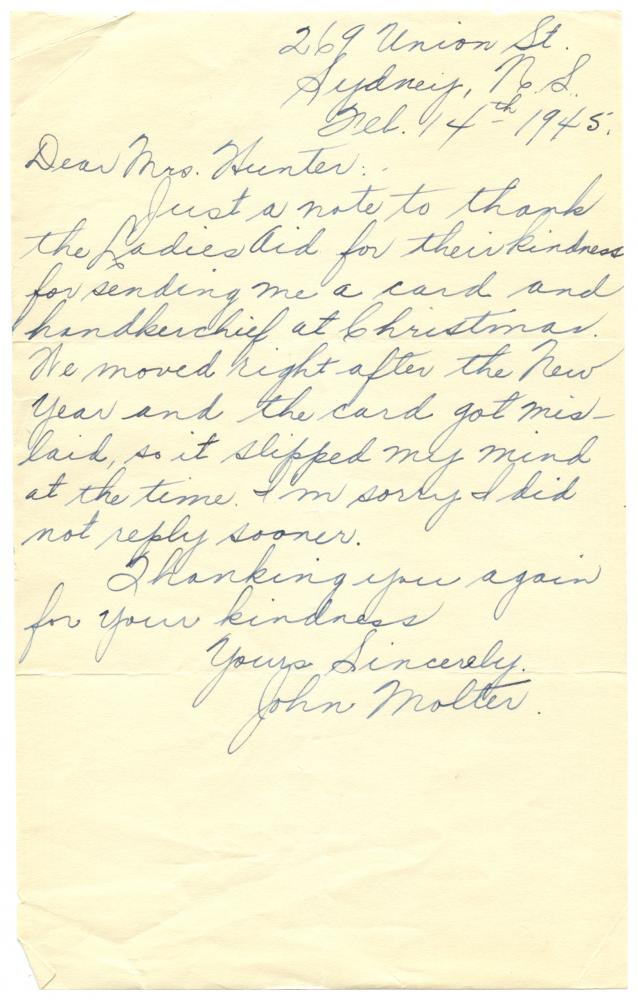 269 Union St.
Sydney, N.S.
Feb. 14th 1945.
Dear Mrs. Hunter:
Just a note to thank
the Ladies Aid for their kindness
for sending me a card and
handkerchief at Christmas.
We moved right after the New
Year and the card got mis-
laid, so it slipped my mind
at the time. I'm sorry I did
not reply sooner.
Thanking you again
for your kindness
Yours Sincerely.
John Molter.